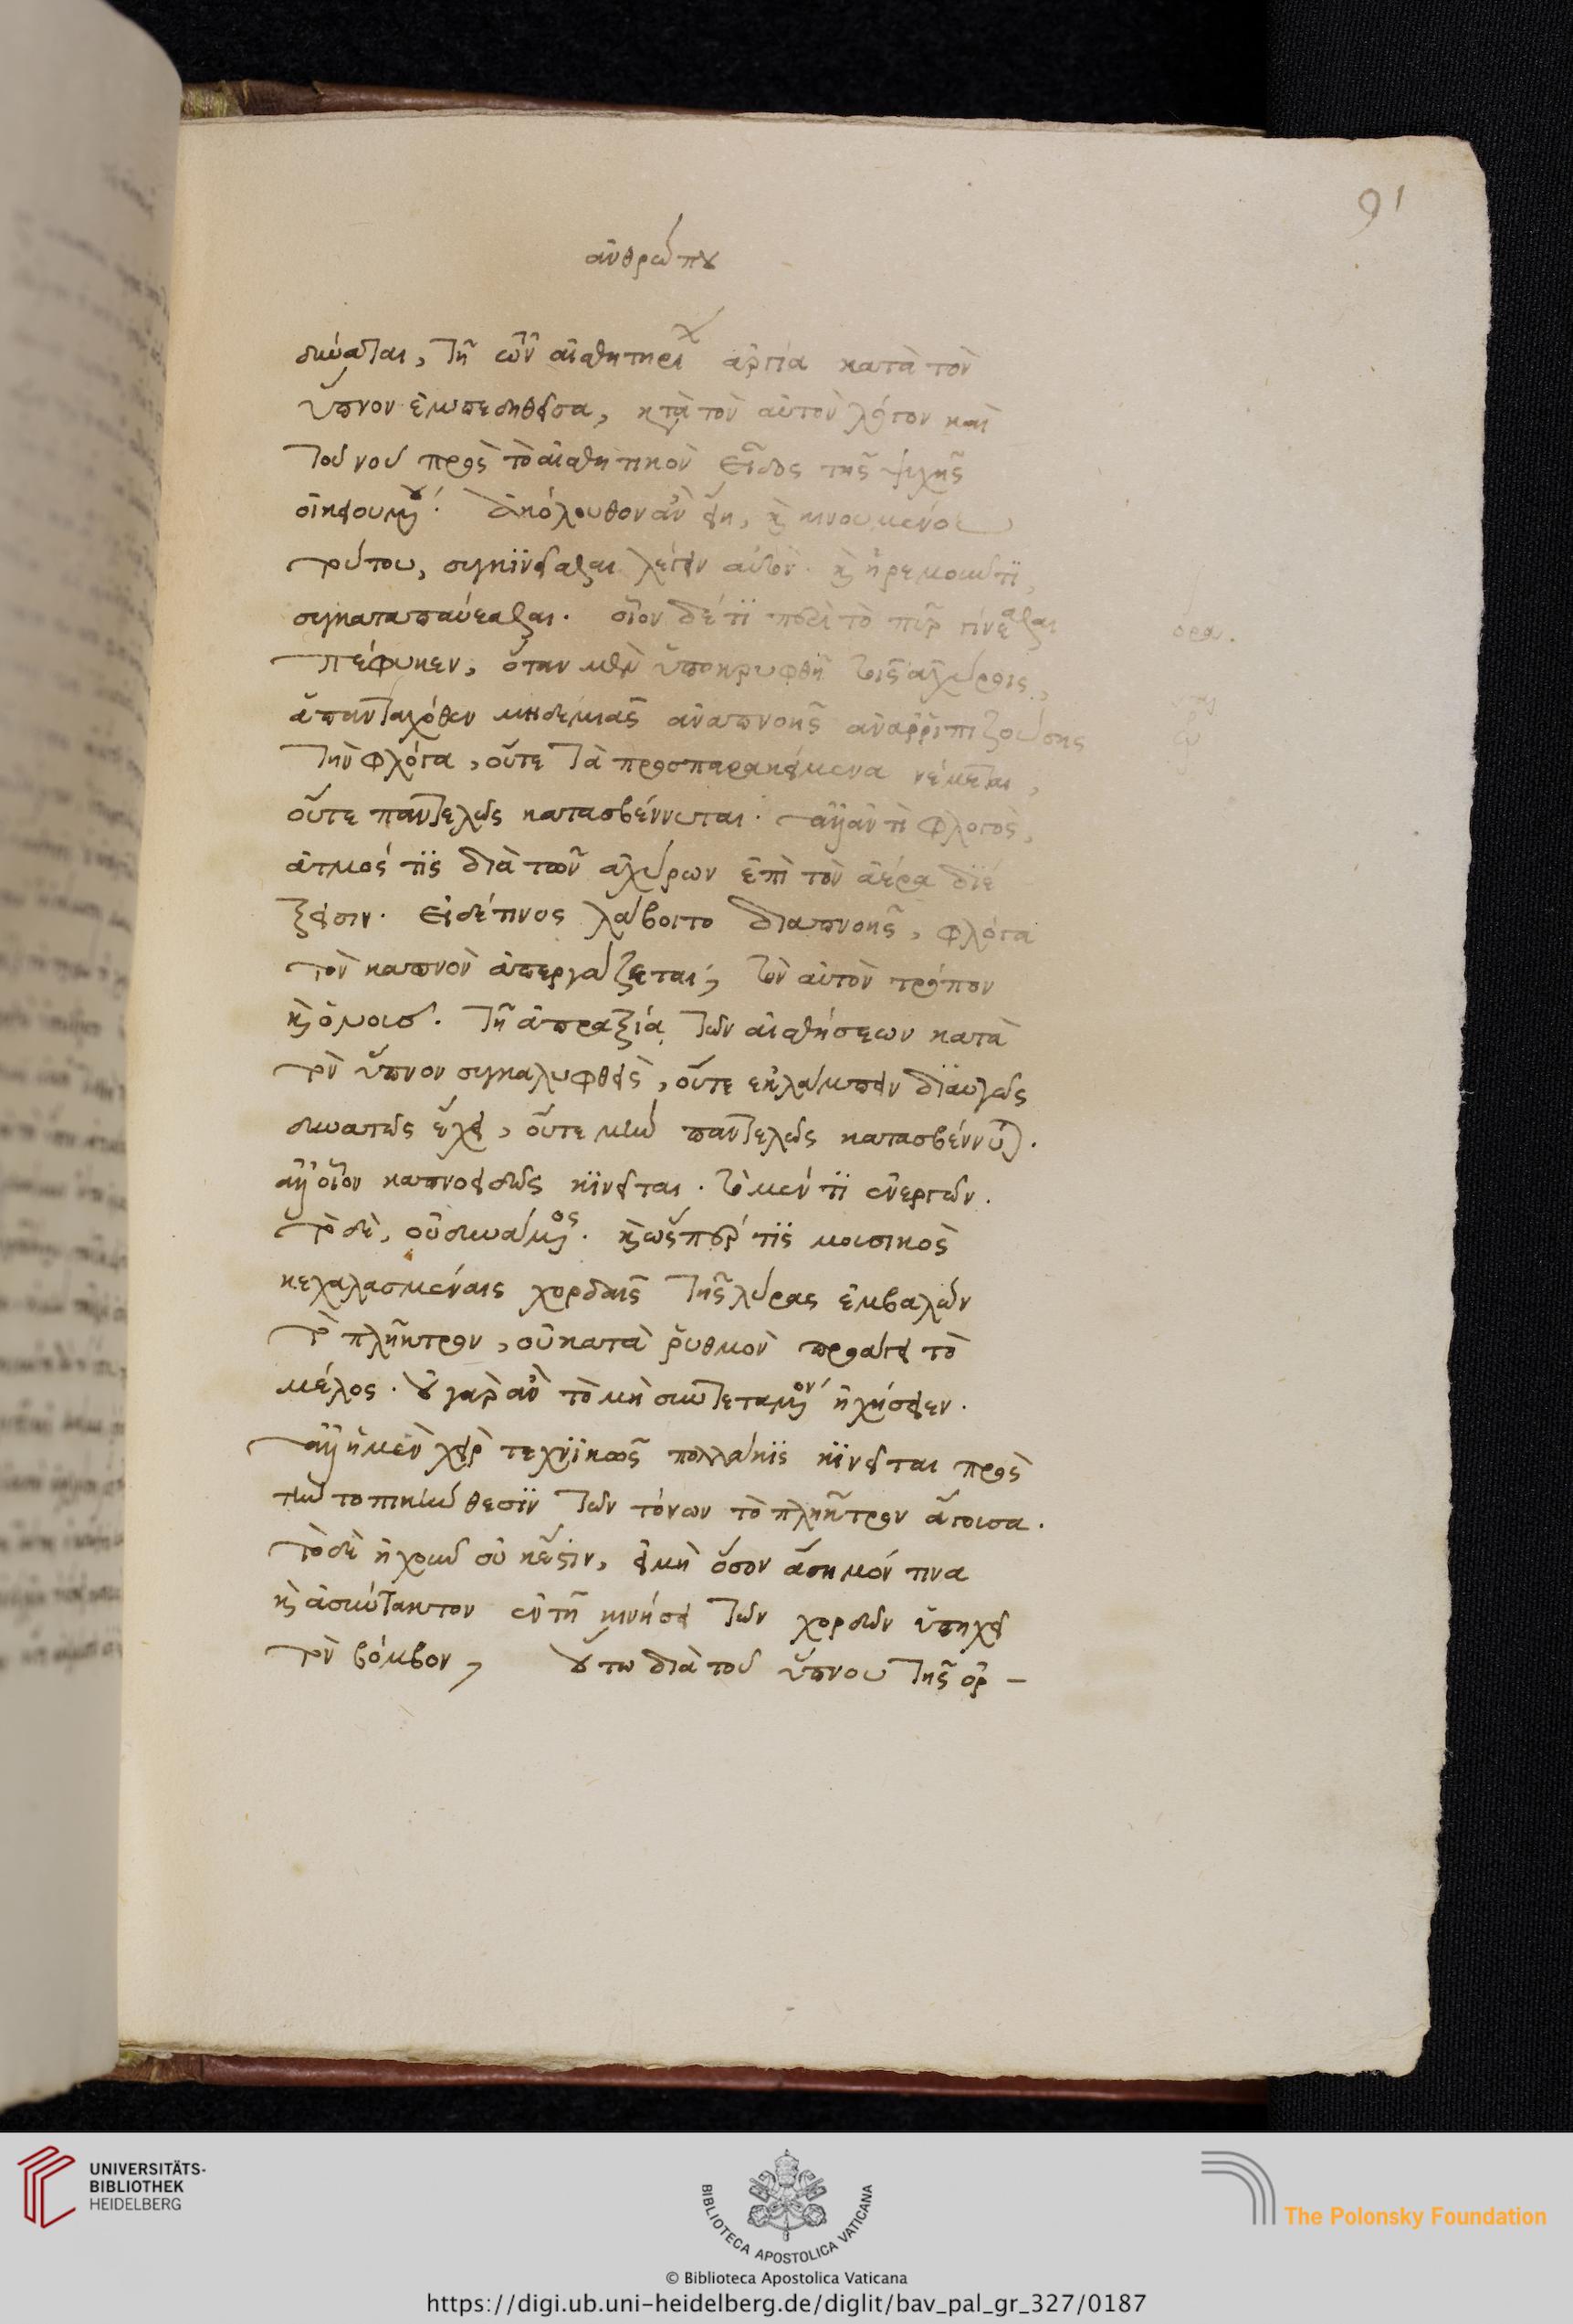 91
ἀνθρώπου
δύναται, τῇ τῶν αἰσθητηρί ἀργία κατὰ τὸν
ὕπνον ἐμπεδηθεῖσα, κατὰ τὸν αὐτὸν λόγον καὶ
τοῦ νοῦ πρὸς τὸ αἰσθητικὸν εἶδος τῆς ψυχῆς
οἰκειουμένου. ἀκόλουθον ἂν εἴη, καὶ κινουμένου
τούτου, συγκινεῖσθαι λέγειν αὐτὸν. καὶ ἠρεμοῦντι,
συγκαταπαύεσθαι. οἷον δέ τι περὶ τὸ πῦρ γίνεσθαι
ορα.
πέφυκεν, ὅταν μὲν ὑποκρυφθῇ τοῖς ἀχύροις,
ἁπανταχόθεν μηδεμιᾶς ἀναπνοῆς ἀναρριπιζούσης
τὴν φλόγα, οὔτε τὰ προσπαρακείμενα νέμεται,
οὔτε παντελῶς κατασβέννυται. ἀλλ' ἀντὶ φλογὸς,
ἀτμός τις διὰ τῶν ἀχύρων ἐπὶ τὸν ἀέρα διέ
ξεισιν. εἰ δέ τινος λάβοιτο διαπνοῆς, φλόγα
τὸν καπνὸν ἀπεργάζεται, τὸν αὐτὸν τρόπον
καὶ ὁ νοῦς. τῇ ἀπραξίᾳ τῶν αἰσθήσεων κατὰ
τὸν ὕπνον συγκαλυφθεὶς, οὔτε ἐκλάμπειν διαυγῶς
δυνατῶς ἔχει, οὔτε μὴν παντελῶς κατασβέννυται.
ἀλλ' οἷον καπνοειδῶς κινεῖται. τὸ μέν τι ἐνεργῶν.
τὸ δὲ, οὐ δυνάμενος. καὶ ὥσπερ τις μουσικὸς
κεχαλασμέναις χορδαῖς τῆς λύρας ἐμβαλὼν
τὸ πλῆκτρον, οὐ κατὰ ῥυθμὸν προάγει τὸ
μέλος. οὐ γὰρ ἂν τὸ μὴ συντεταμένον ἠχήσειεν.
ἀλλ' ἡ μὲν χεὶρ τεχνικῶς πολλάκις κινεῖται πρὸς
τὴν τοπικὴν θέσιν τῶν τόνων τὸ πλῆκτρον ἄγουσα.
τὸ δὲ ἠχοῦν οὐκ ἔστιν, εἰ μὴ ὅσον ἄσημόν τινα
καὶ ἀσύντακτον ἐν τῇ κινήσει τῶν χορδῶν ὑπηχεῖ
τὸν βόμβον, οὕτω διὰ τοῦ ὕπνου τῆς ὀρ –
UNIVERSITÄTS-
BIBLIOTHEK
HEIDELBERG
BIBLIOTECA APOSTOLICA VATICANA
The Polonsky Foundation
© Biblioteca Apostolica Vaticana
https://digi.ub.uni-heidelberg.de/diglit/bav_pal_gr_327/0187